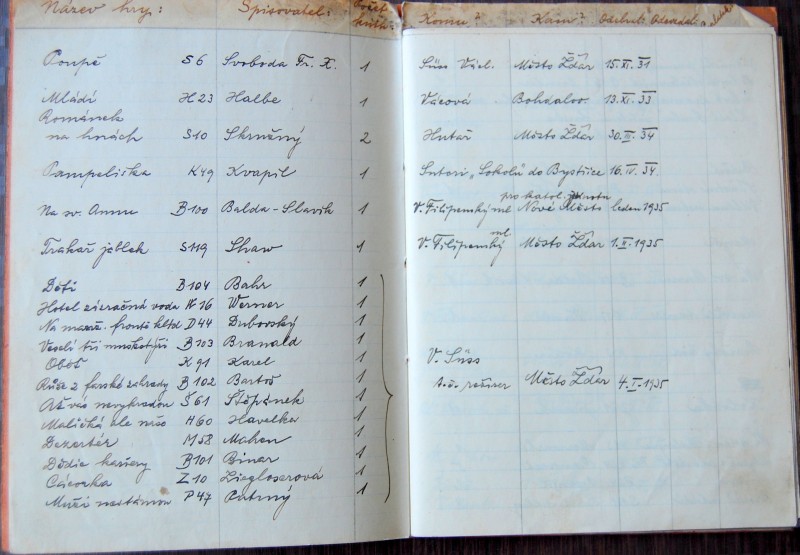 Název hry: Spisovatel: Počet knih: Komu? Kam? Odesláno
Poupě S6 Svoboda Fr. X. 1 Süss Václ. Město Žďár 15.XI.31
Mládí H23 Halbe 1 Vácová Bohdalov 13.XI.33
Románek
na horách S10 Skružný 2 Hutař Město Žďár 30.III.34
Pampeliška K49 Kvapil 1 Sutori „Sokolu" do Bystřice 16.IV.34.
pro katol. jednotu
Na sv. Annu B100 Balda-Slavík 1 V. Filipenský ml. Nové Město leden 1935
Trakař jablek S119 Shaw 1 V. Filipenský ml. Město Žďár 1.II.1935
Děti B104 Bahr 1
Hotel zázračná voda W16 Werner 1
Na frontě klid D44 Dubovský 1
Veselí tři mušketýři B103 Branald 1
Oběť K91 Karel 1 V. Süss
Růže z farské zahrady B102 Bartoš 1 t.č. režiser Město Žďár 4.I.1935
Ať vás nevykradou Š61 Štěpánek 1
Maličká ale naše H60 Havelka 1
Dezertér M58 Mahen 1
Dědic B101 Binar 1
Cácorka Z10 Ziegloserová 1
Muži nestárnou P47 Patrný 1